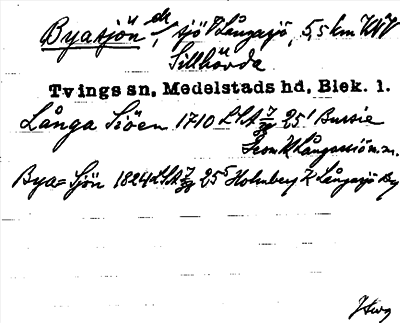 Byasjön el., sjö V Långasjö, 5,5 km NV
Sillhövda
Tvings sn, Medelstads hd, Blek. l.
Långa Siöen 1710 LSA 25¹ Bursie
Från K Långasiö m.m.
Bya=Sjön 1824 LSA 25⁵ Holmberg K Långasjö By